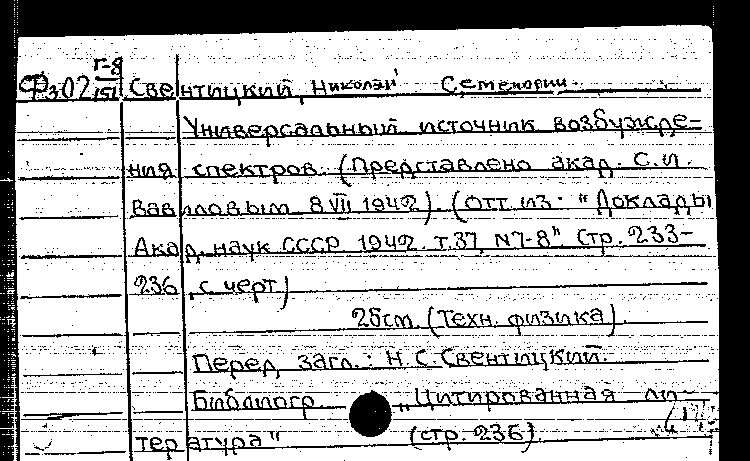 Г-8
Фз02 151 Свентицкий, Николай Семенович.
Универсальный источник возбужде-
ния спектров. (Представлено акад. С.И.
Вавиловым 8 VII 1942). (Отт. из: "Доклады
Акад. наук СССР 1942. т.37, N7-8" стр. 233-
236, с черт.)
25см. (Техн. физика).
Перед загл.: Н.С. Свентицкий.
Библиогр. „Цитированная ли-
тература" (стр. 236).